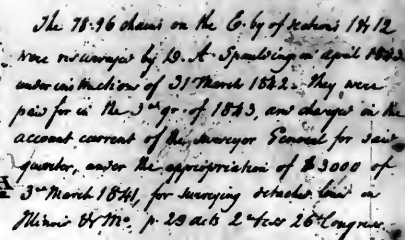 The 78.96 chains on the E. by of sections 1 & 12
were resurveyed by D. A. Spaulding in April 1843
under instructions of 31 March 1842. They were
paid for in the 3rd qr. of 1843, and charged in the
account current of the Surveyor General for said
quarter, under the appropriation of $3000 of
3rd March 1841, for surveying detached lands in
Illinois & Mo. p. 29 acts 2d Sess 26th Congress.